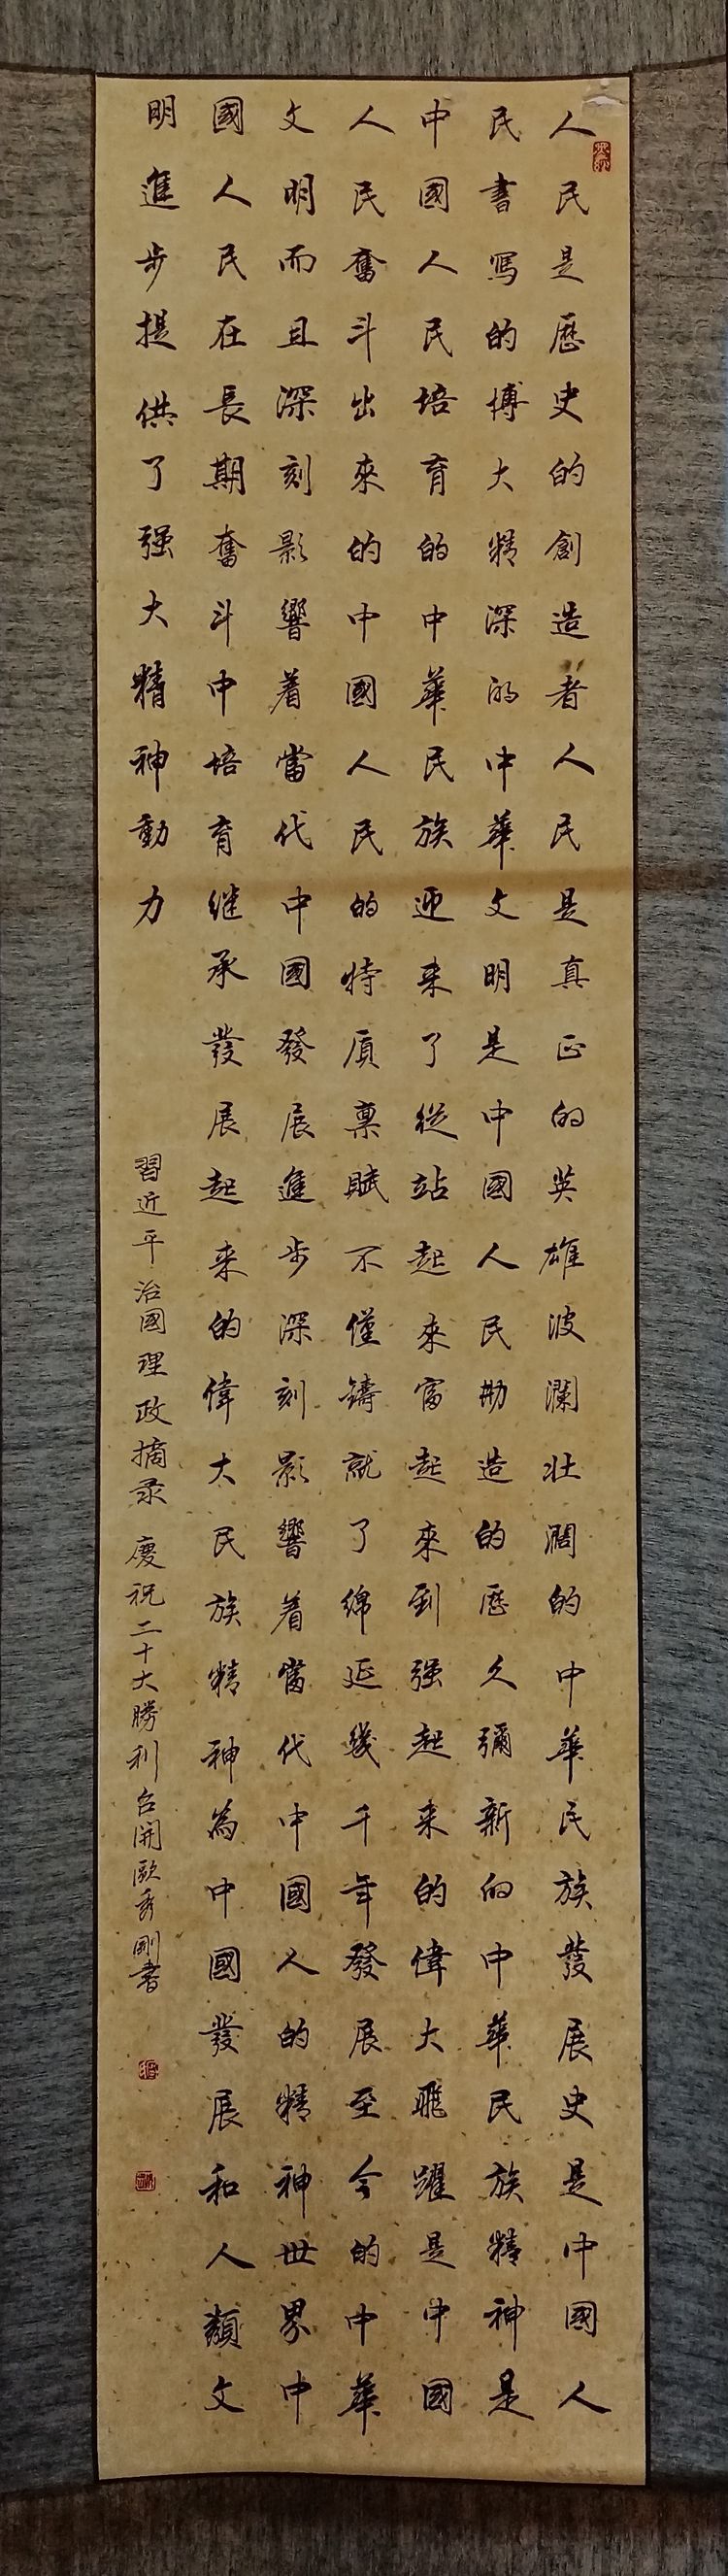 人民是歷史的創造者人民是真正的英雄波瀾壯闊的中華民族發展史是中國人
民書寫的博大精深的中華文明是中國人民勘造的歷久彌新的中華民族精神是
中國人民培育的中華民族迎来了從站起來富起來到强起来的偉大飛躍是中國
人民奮斗出來的中國人民的特质禀賦不僅鑄就了綿延幾千年發展至今的中華
文明而且深刻影響着當代中國發展進步深刻影響着當代中國人的精神世界中
國人民在長期奮斗中培育继承發展起来的偉大民族精神為中國發展和人類文
明進步提供了强大精神動力
習近平治國理政摘录 慶祝二十大勝利召開歐秀剛書